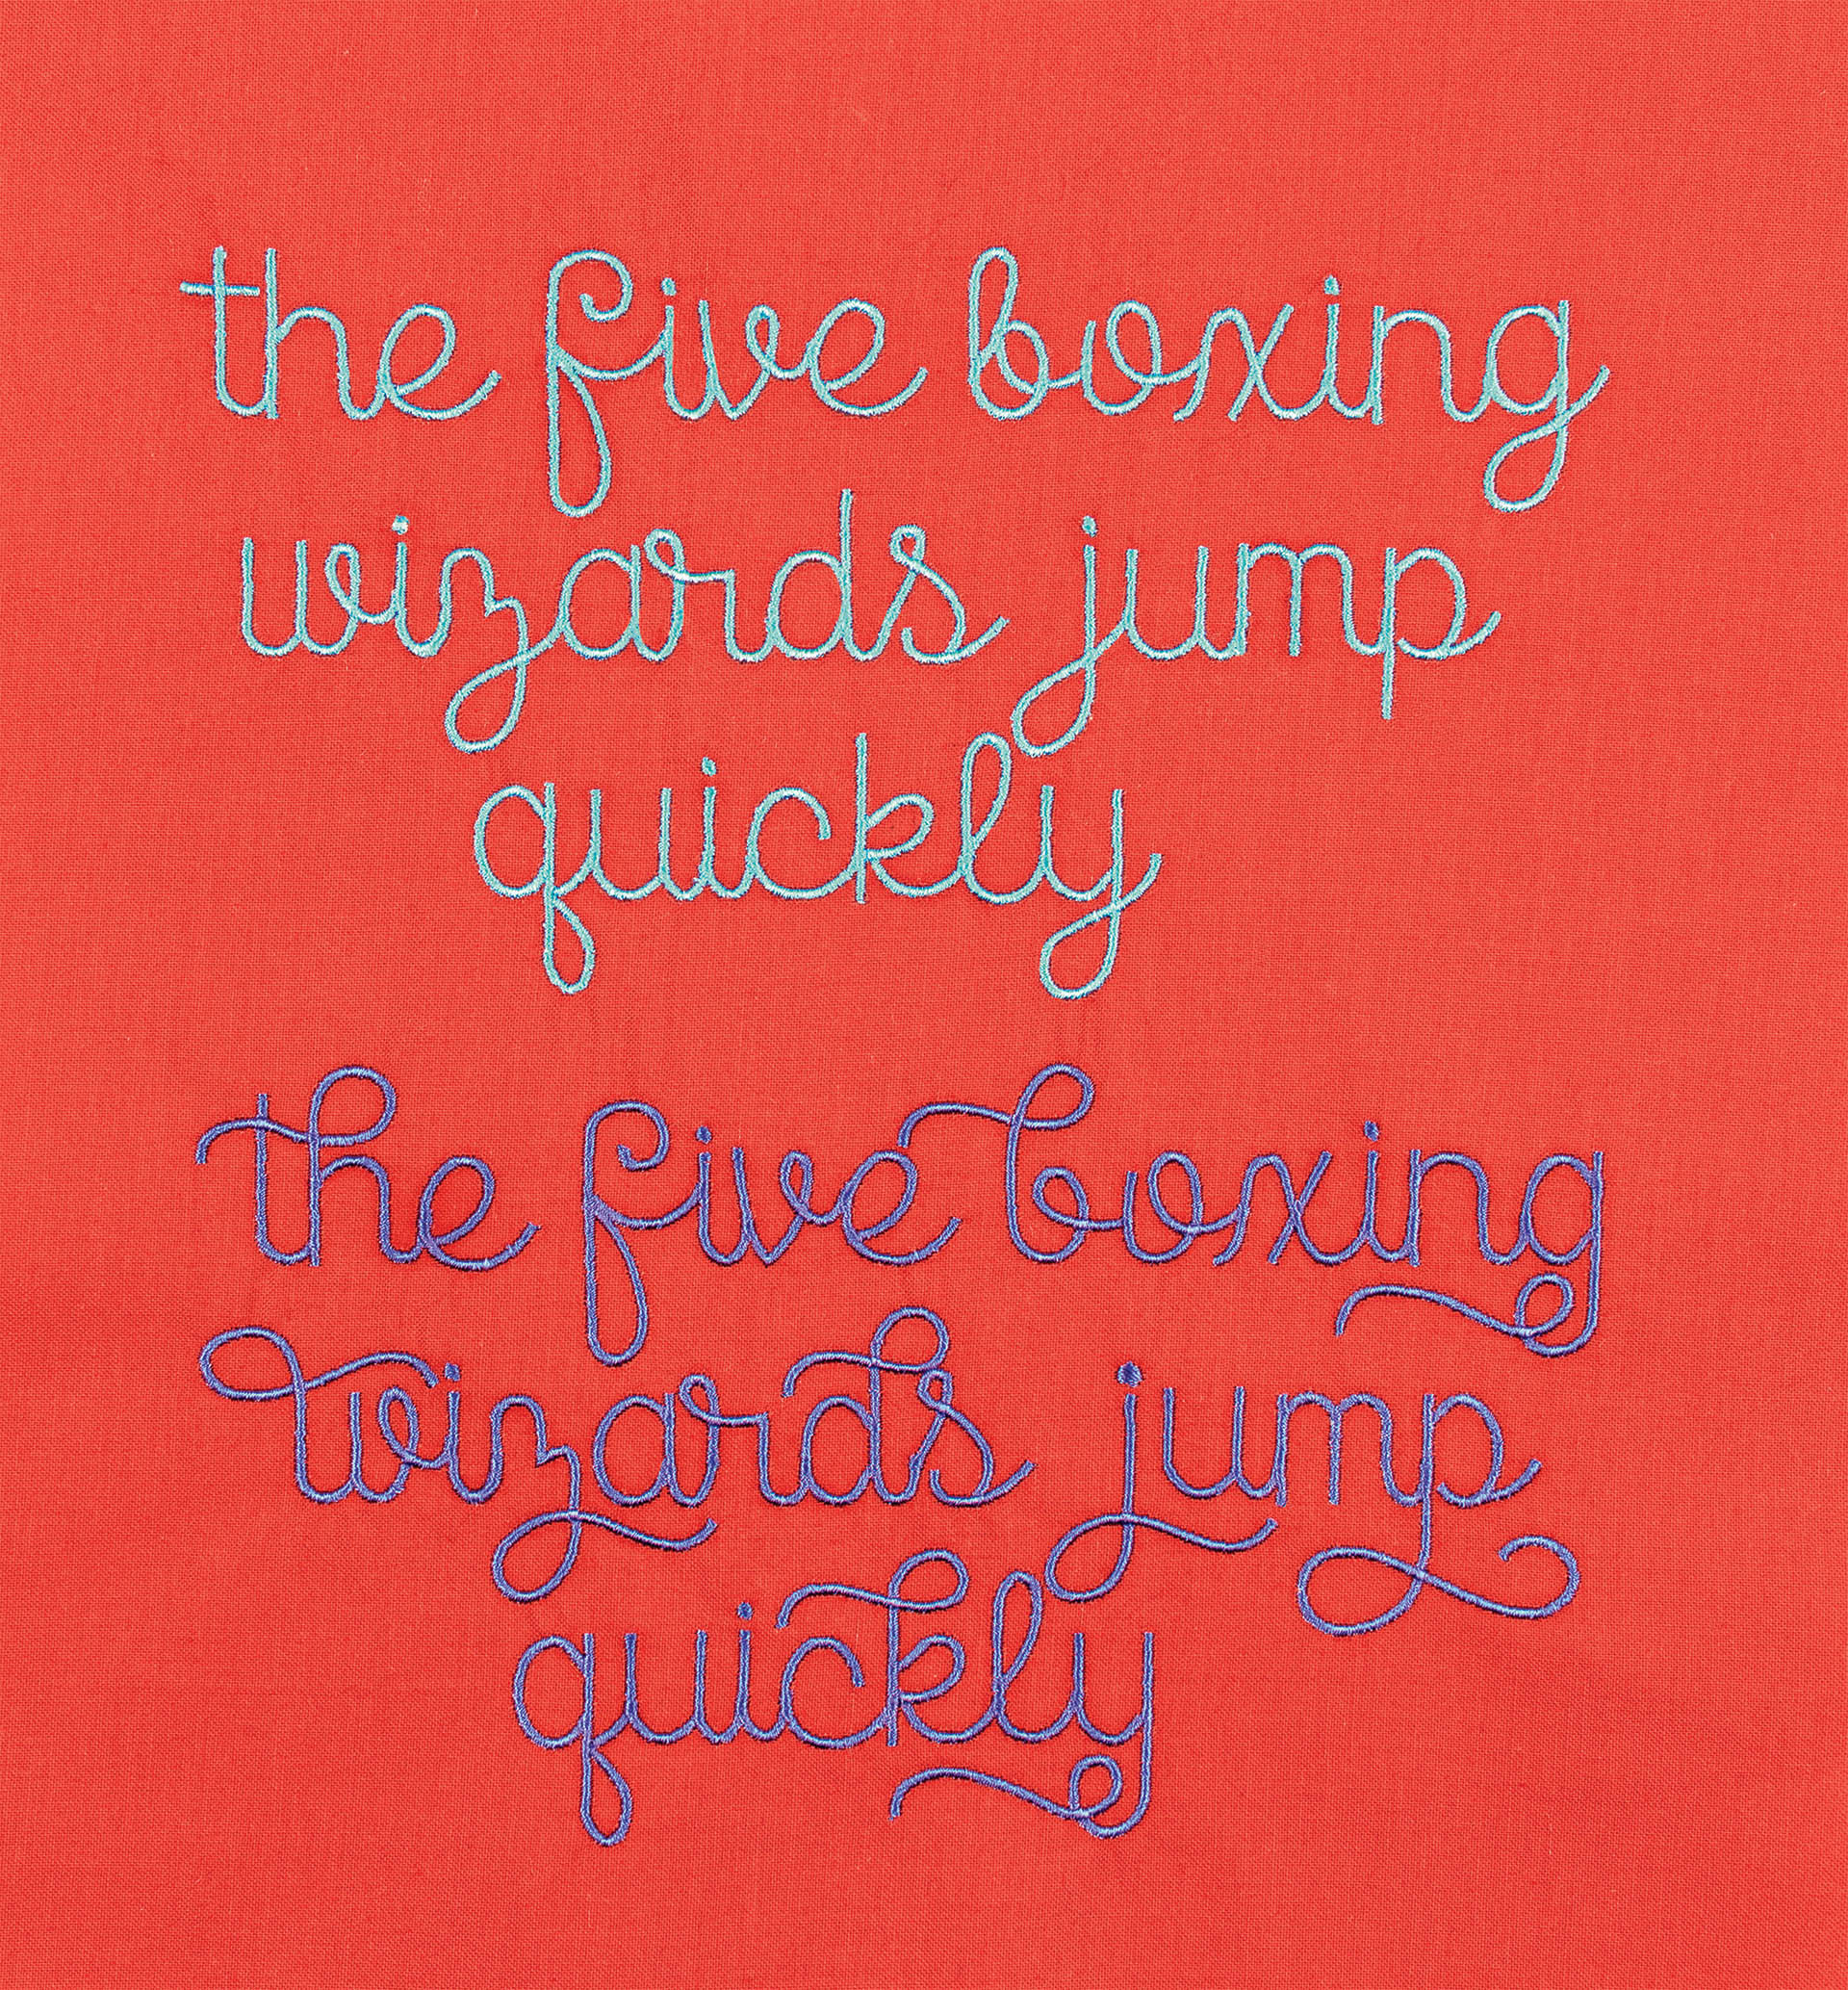 the five boxing
wizards jump
quickly
the five boxing
wizards jump
quickly